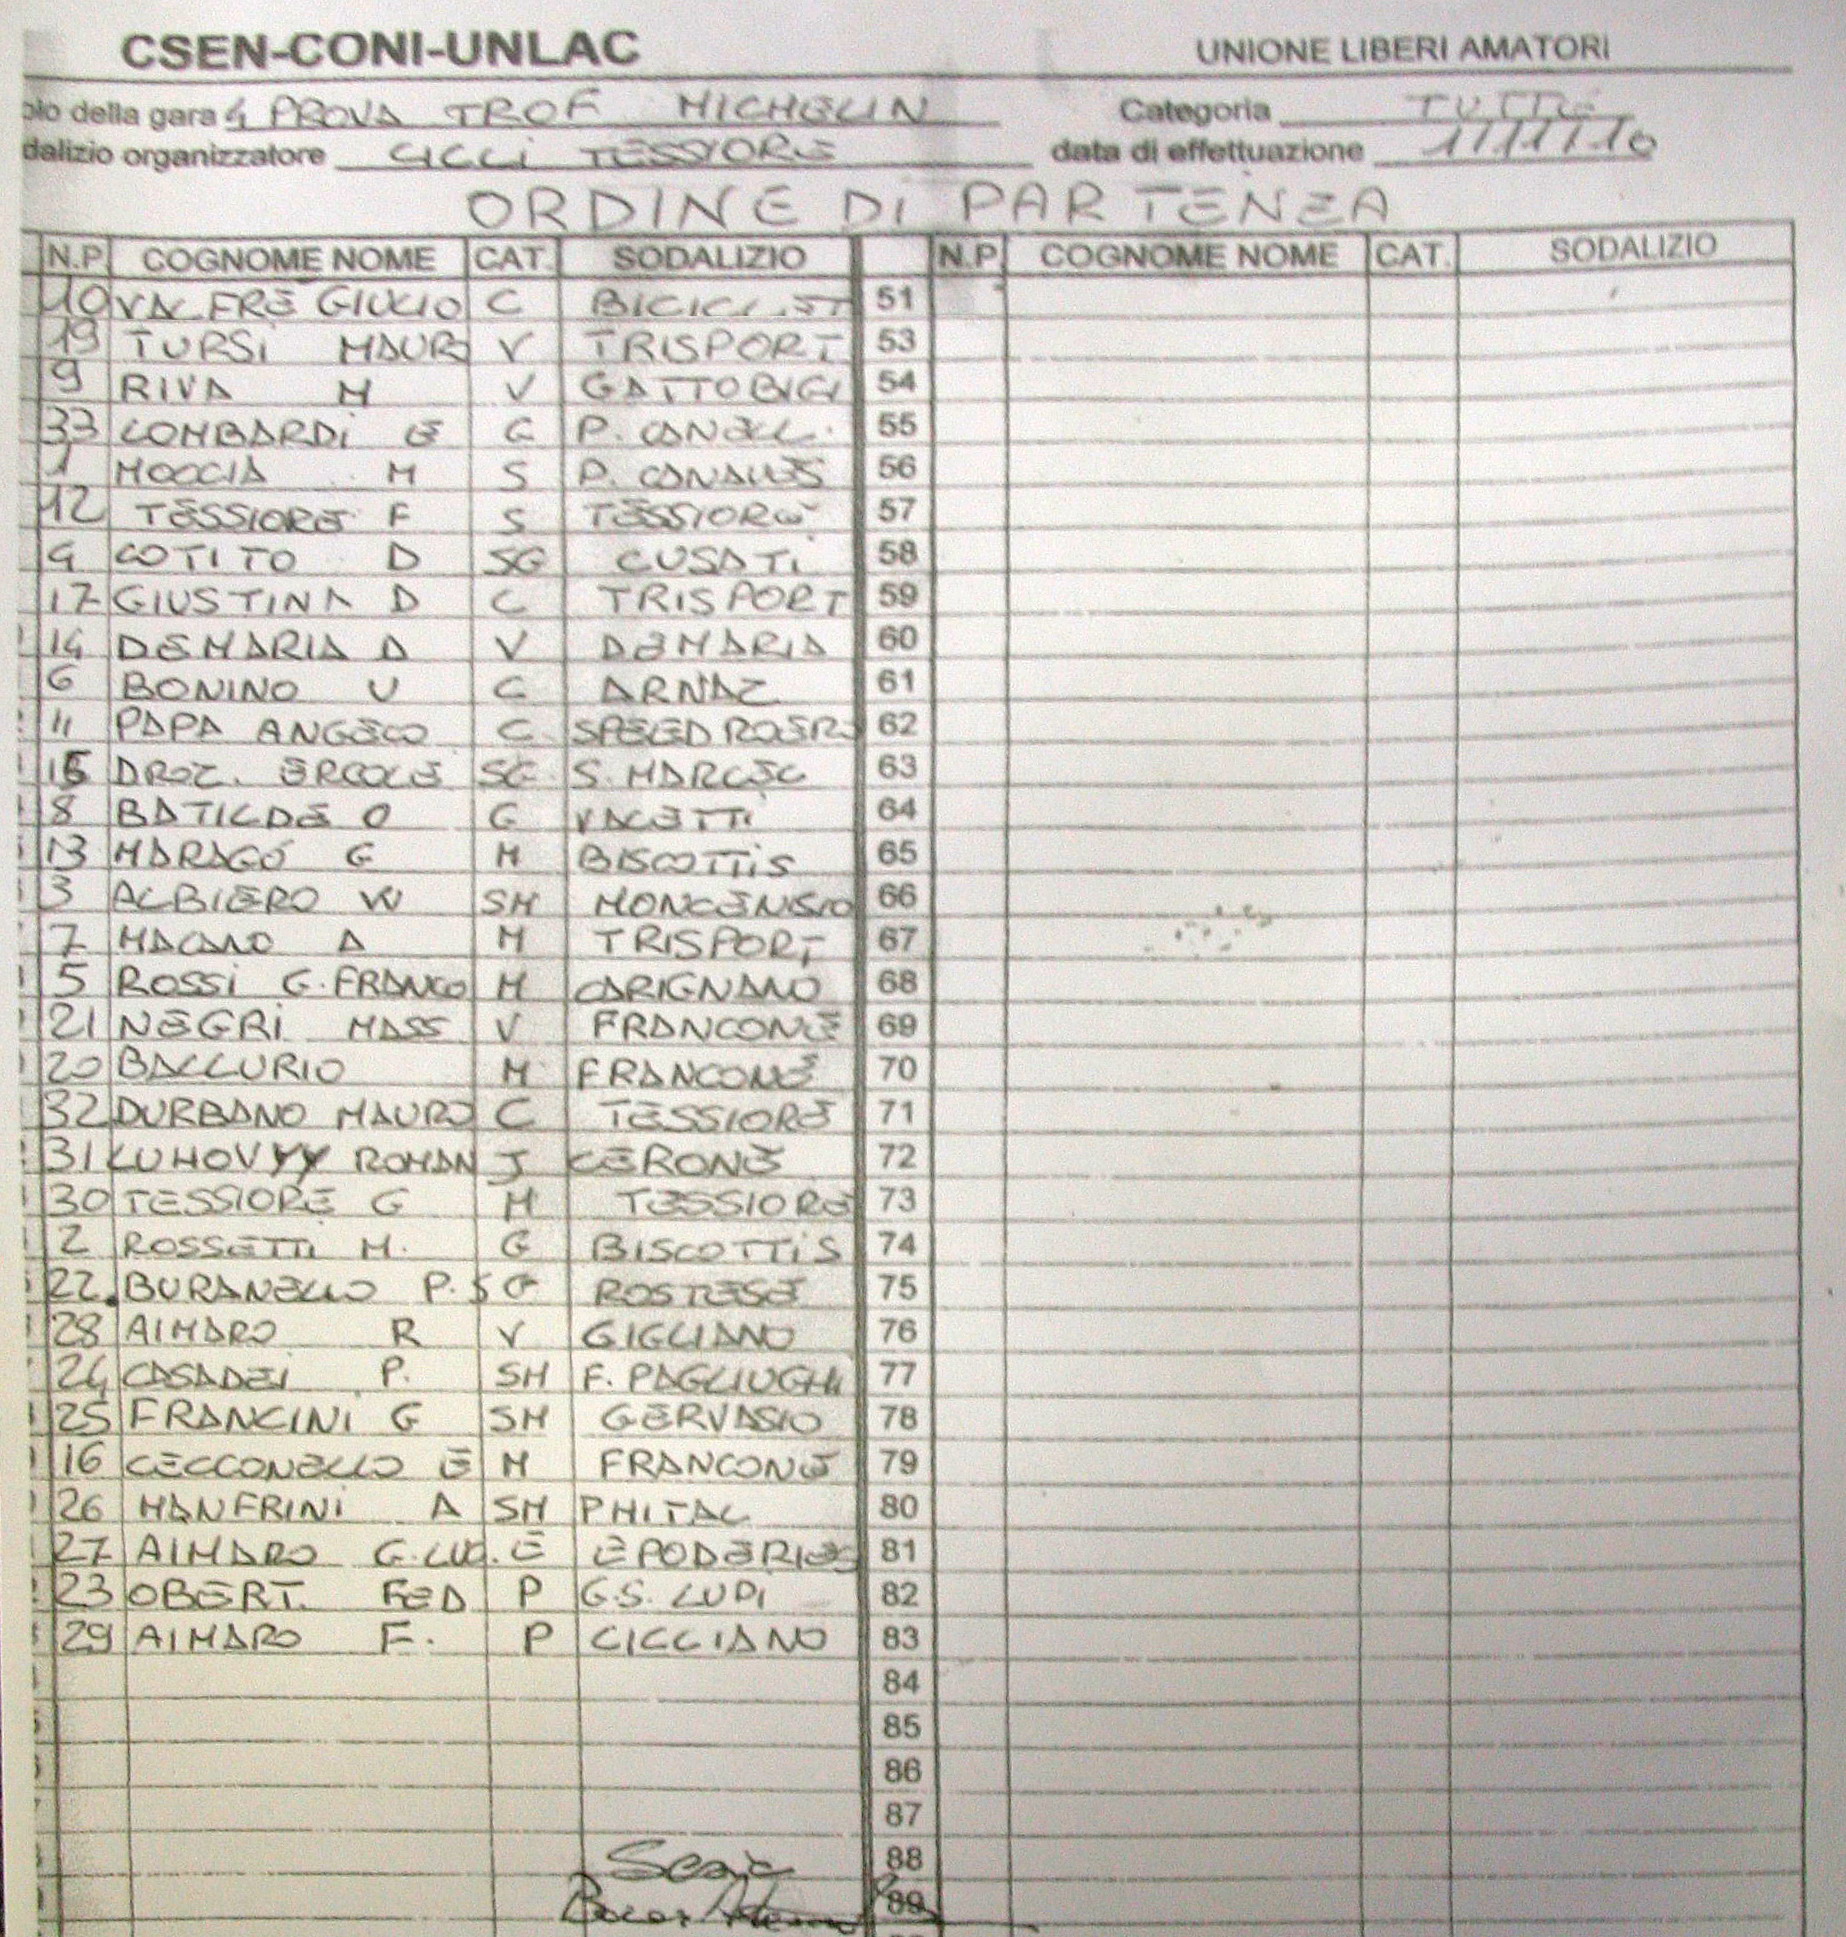 CSEN-CONI-UNLAC UNIONE LIBERI AMATORI
olo della gara 4 PROVA TROF MICHELIN Categoria TUTTE
dalizio organizzatore CICLI TESSIORE data di effettuazione 1/11/10
ORDINE DI PARTENZA
N.P COGNOME NOME CAT. SODALIZIO N.P COGNOME NOME CAT. SODALIZIO
10 VALFRE GIULIO C 51
19 TURSI MAUR V TRISPORT 53
9 RIVA M V GATTOBICI 54
33 LOMBARDI E G P. CANELL. 55
1 MOCCIA M S P. CANALES 56
12 TESSIORE F S TESSIORE 57
4 COTITO D SG CUSATI 58
17 GIUSTINA D C TRISPORT 59
14 DEMARIA D V DEMARIA 60
6 BONINO V C ARNAZ 61
11 PAPA ANGELO C SPEED ROERO 62
15 DROZ. ERCOLE SG S. MARCEL 63
8 BATILDE O G VALETTI 64
13 MARAGO G M BISCOTTIS 65
3 ALBIERO W SM MONCENISIO 66
7 A M TRISPORT 67
5 ROSSI G.FRANCO M CARIGNANO 68
21 NEGRI MASS V FRANCONE 69
20 BALLURIO M FRANCONE 70
32 DURBANO MAURO C TESSIORE 71
31 LUHOVYY ROMAN J CERONE 72
30 TESSIORE G M TESSIORE 73
2 ROSSETTI M. G BISCOTTIS 74
22. BURANELLO P. SG ROSTESE 75
28 AIMARO R V GIGLIANO 76
24 CASADEI P. SM F. PAGLIUGHI 77
25 FRANCINI G SM GERVASIO 78
16 CECCONELLO E M FRANCONE 79
26 MANFRINI A SM PHITAL 80
27 AIMARO G.LUC. E 81
23 OBERT. FED P G.S. LUPI 82
29 AIMARO F. P CICLIANO 83
84
85
86
87
88
89